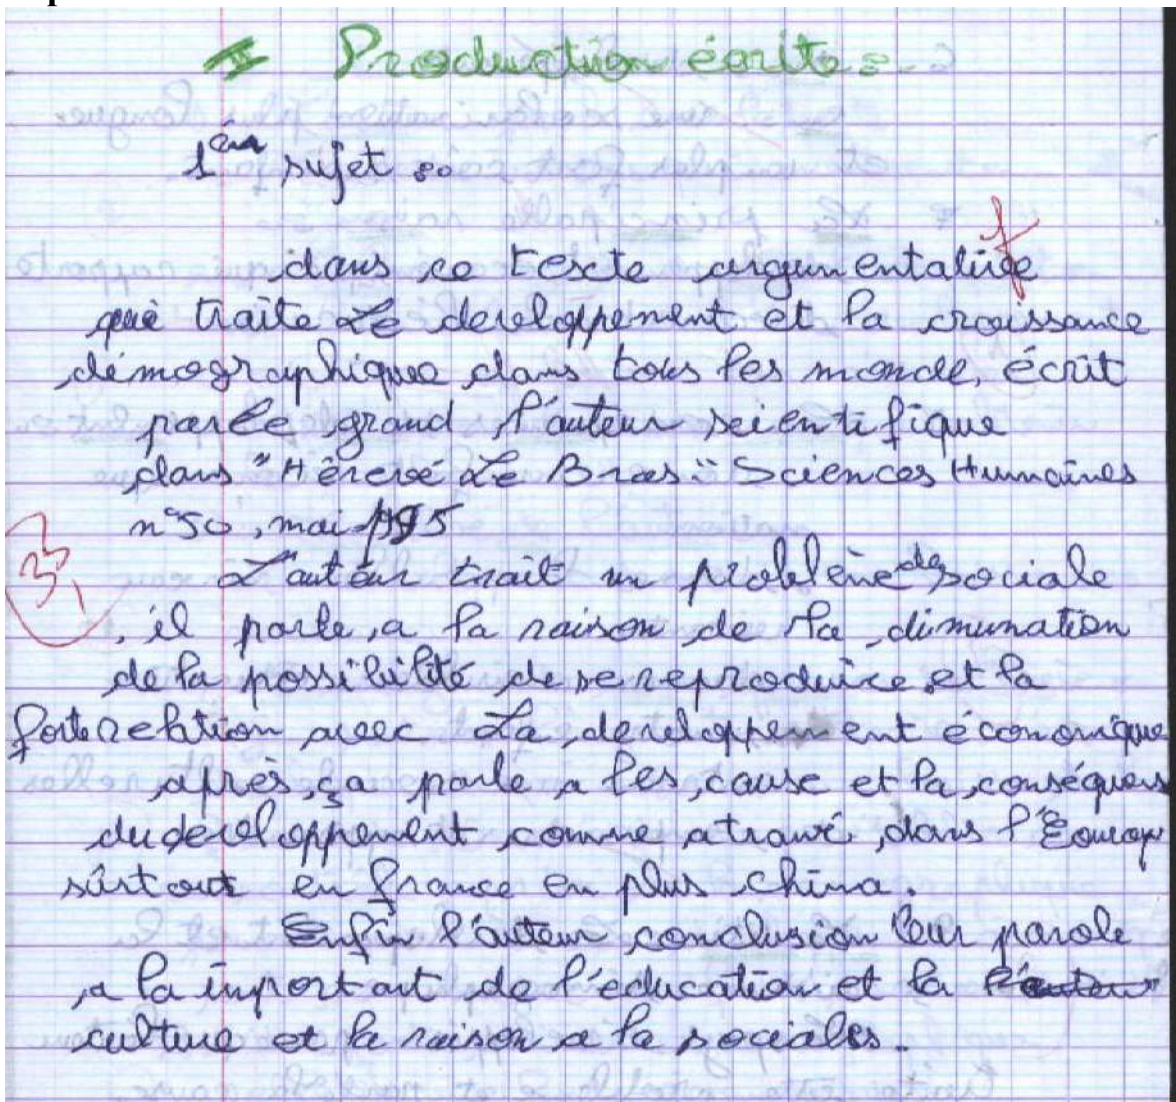 II Production écrite :
1ér sujet :
dans ce texte argumentative
qui traite Le developpement et la croissance
démographique dans tous les monde, écrit
par le grand l'auteur scientifique
dans "Hérevé Le Bras" Sciences Humaines
n°50, mai 1995
L'auteur trait un problème de sociale
, il parle, a la raison de la dimunation
de la possibilité de se reproduire et la
forte relation avec La developpement économique
après, ça parle a les, cause et la conséquens
du developpement comme a travé, dans l'Europ
sûrtout en france en plus china.
Enfin l'auteur conclusion leur parole
a la important de l'education et la
culture et la raison a la sociales.